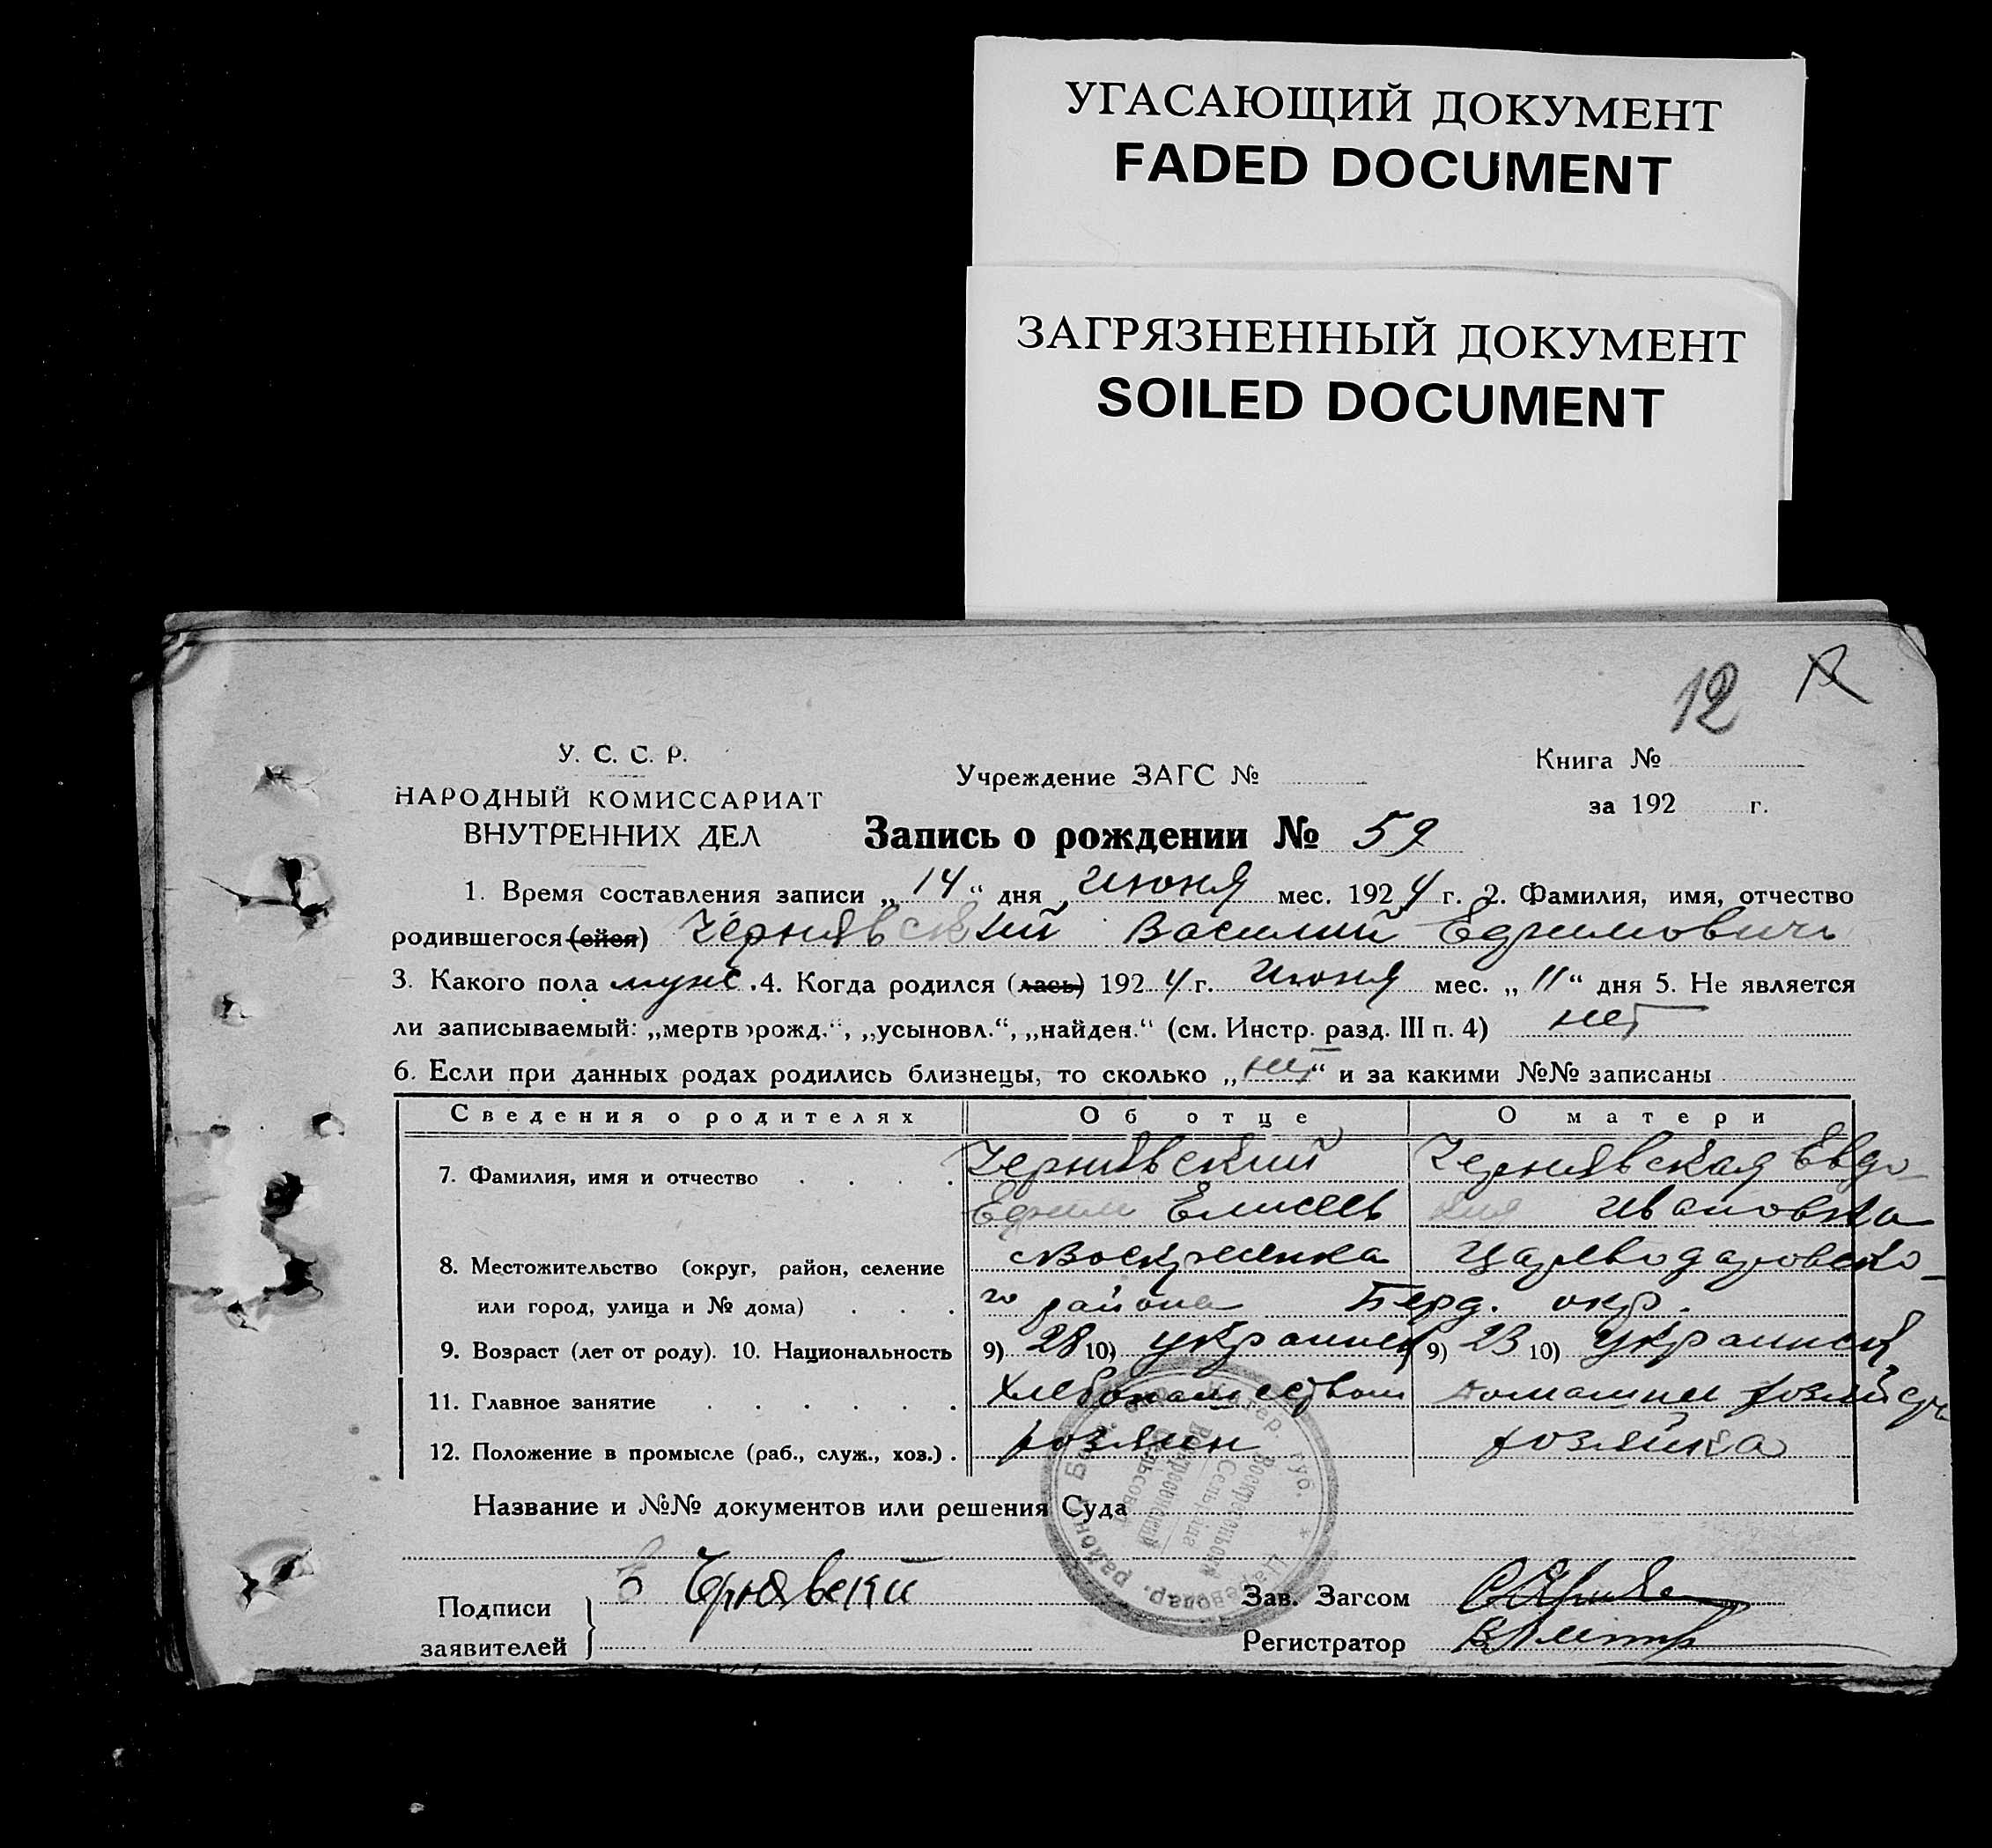 УГАСАЮЩИЙ ДОКУМЕНТ
FADED DOCUMENT
ЗАГРЯЗНЕННЫЙ ДОКУМЕНТ
SOILED DOCUMENT
12
У. С. С. Р.
НАРОДНЫЙ КОМИССАРИАТ
ВНУТРЕННИХ ДЕЛ
Учреждение ЗАГС №
Книга №
за 192 г.
Запись о рождении № 59
1. Время составления записи „14“ дня июня мес. 1924 г. 2. Фамилия, имя, отчество
родившегося (ейся) Чернявский Василий Ефимовичъ
3. Какого пола муж. 4. Когда родился (лась) 1924 г. июня мес. „11“ дня 5. Не является
ли записываемый: „мертворожд.“, „усыновл.“, „найден.“ (см. Инстр. разд. III п. 4) нет
6. Если при данных родах родились близнецы, то сколько „нет“ и за какими №№ записаны
Сведения о родителях Об отце О матери
7. Фамилия, имя и отчество Чернявский Чернявская Евдо-
Ефим Елисеев кия Ивановна
8. Местожительство (округ, район, селение Воскресенка Цареводаровско-
или город, улица и № дома) го района Берд. окр.
9. Возраст (лет от роду). 10. Национальность 9) 28 10) украинец 9) 23 10) украинск
11. Главное занятие хлебопашеством домашнее хозяйств
12. Положение в промысле (раб., служ., хоз.) хозяин хозяйка
Название и №№ документов или решения Суда
Подписи
заявителей
Е Чрнявский
Зав. Загсом
Регистратор